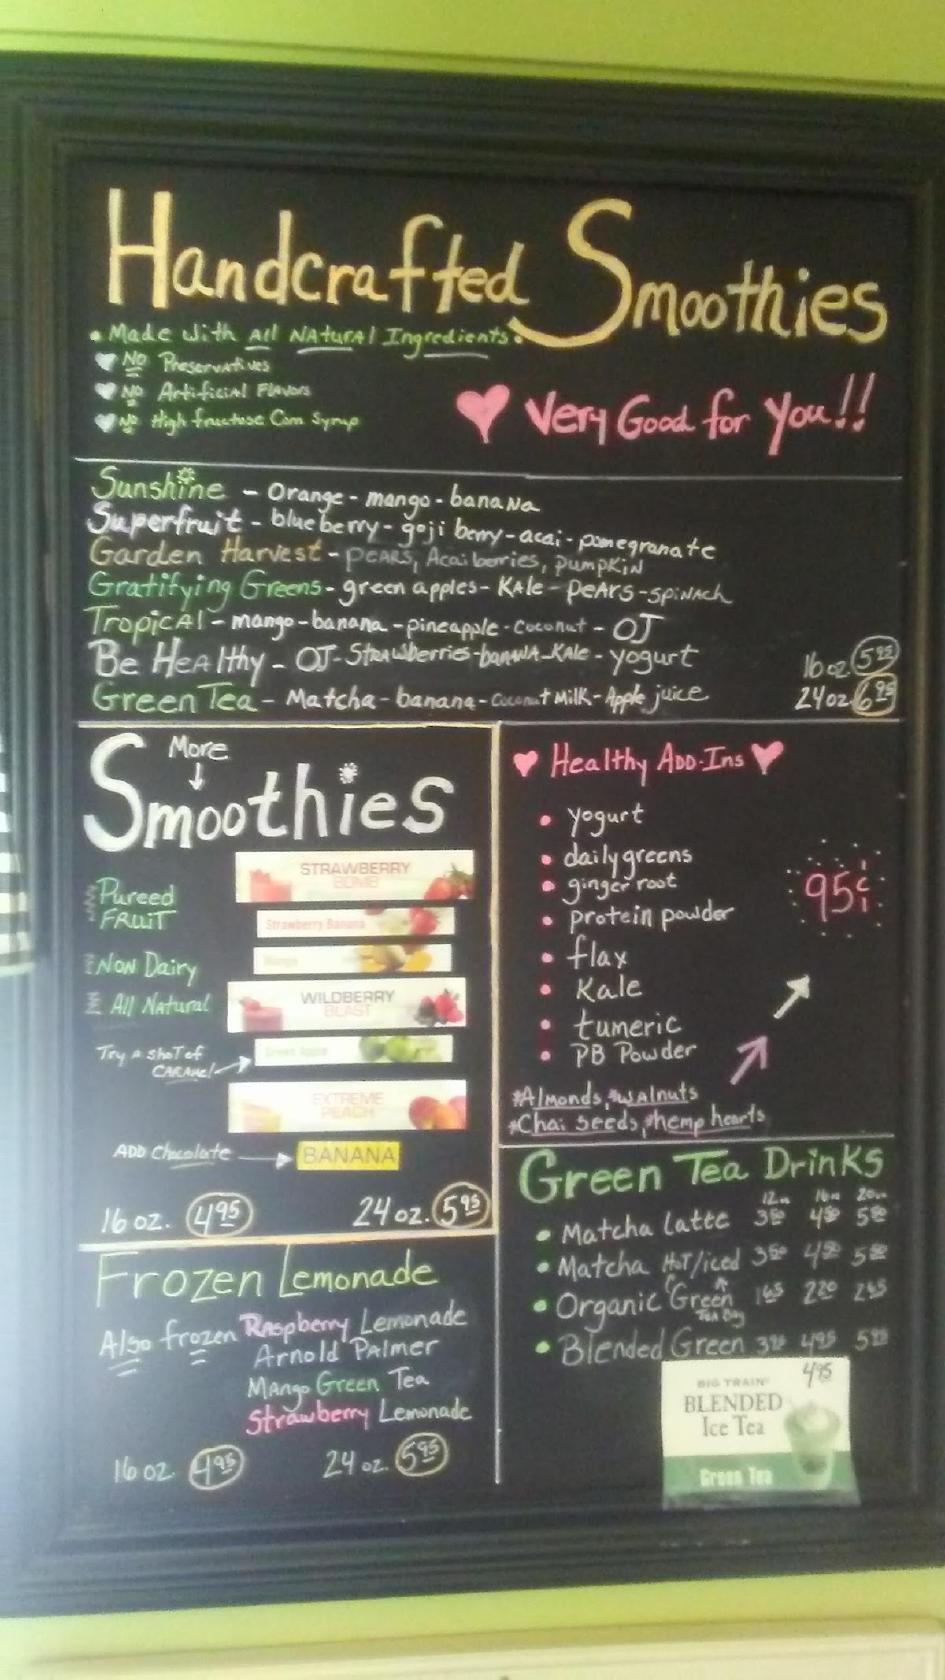 Handcrafted Smoothies
• Made with All NAturAl Ingredients.
NO Preservatives
No Artificial Flavors
No High fructose Corn Syrup
Very Good for You!!
Sunshine - Orange - mango - banana
Superfruit - blueberry - goji berry - acai - pomegranate
Garden Harvest - PEARS, Acai berries, PUMPKIN
Gratifying Greens - green apples - Kale - PeArs - SPINACH
Tropical - mango - banana - pineapple - Coconut - OJ
Be Healthy - OJ - Strawberries - banana - Kale - yogurt
16 oz. 5.95
Green Tea - Matcha - banana - Coconut Milk - Apple juice
24 oz. 6.95
More
Smoothies
Pureed
FRUIT
Non Dairy
All Natural
STRAWBERRY
BOMB
Strawberry Banana
Mango
WILDBERRY
BLAST
Try a shot of
CARAmel
Green Apple
EXTREME
PEACH
ADD Chocolate
BANANA
16 oz. 4.95 24 oz. 5.95
Healthy ADD-Ins
• yogurt
• daily greens
• ginger root
• protein powder
• flax
• Kale
• tumeric
• PB Powder
95¢
*Almonds, *walnuts
*Chai seeds, *hemp hearts
Green Tea Drinks
• Matcha Latte
• Matcha Hot/iced
• Organic Green
Tea Bag
• Blended Green
BIG TRAIN 4.95
BLENDED
Ice Tea
Green Tea
Frozen Lemonade
Also frozen Raspberry Lemonade
Arnold Palmer
Mango Green Tea
Strawberry Lemonade
16 oz. 4.95 24 oz. 5.95